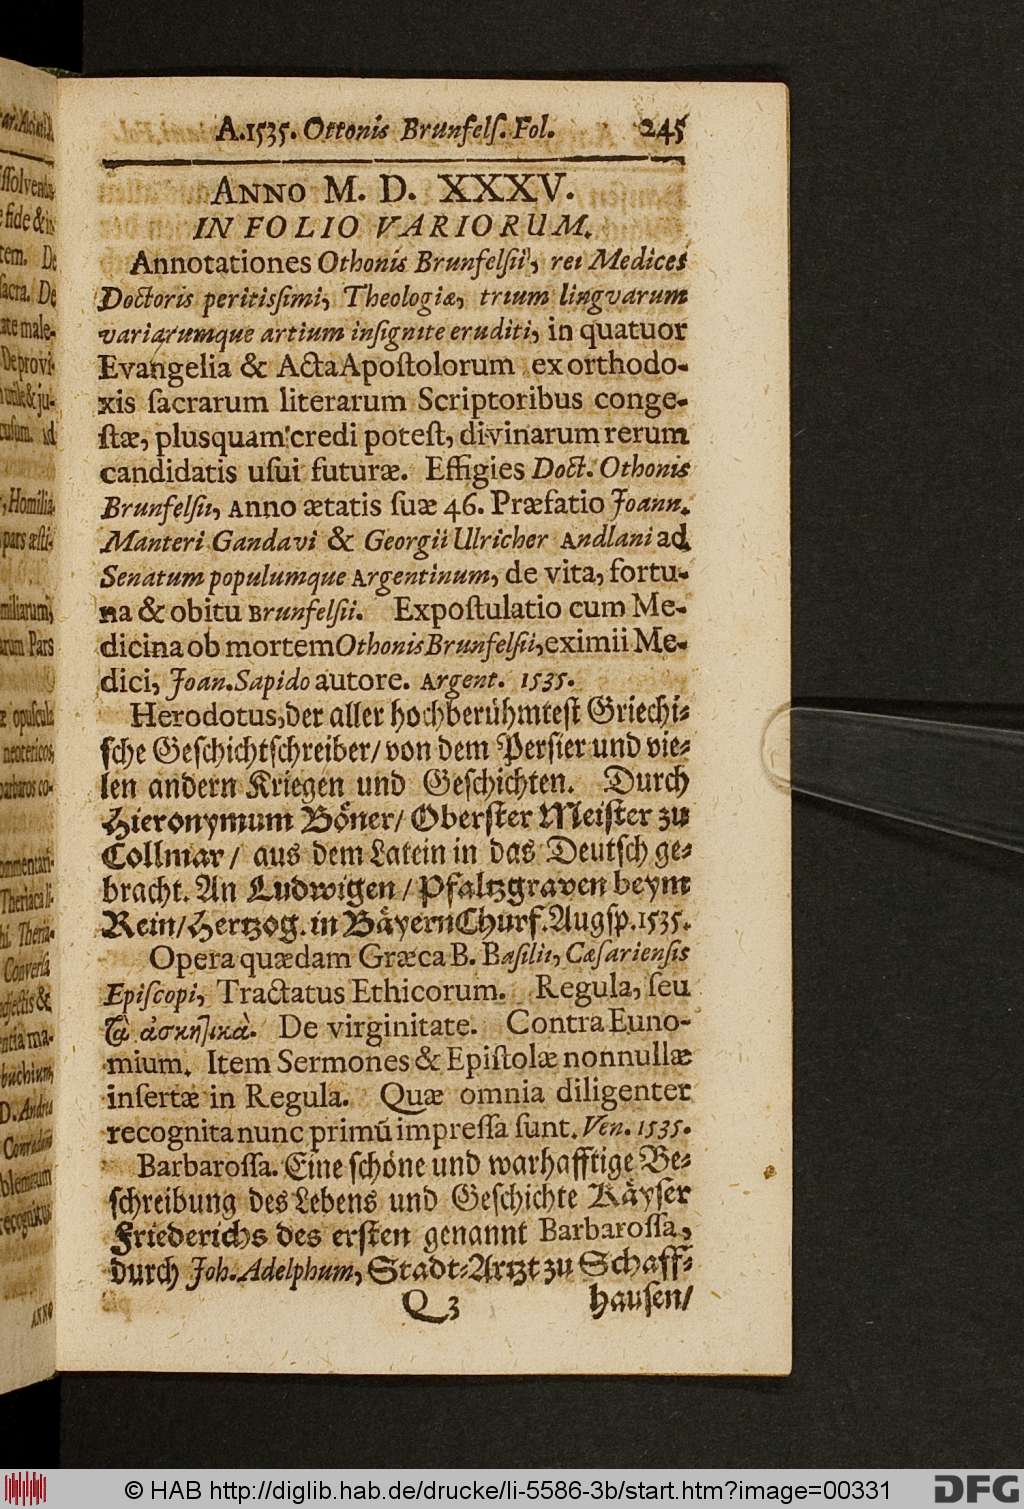 A. 1535. Ottonis Brunfels. Fol. 245
ANNO M. D. XXXV.
IN FOLIO VARIORUM.
Annotationes Othonis Brunfelsii, rei Medices
Doctoris peritissimi, Theologiæ, trium lingvarum
variarumque artium insignite eruditi, in quatuor
Evangelia & Acta Apostolorum ex orthodo-
xis sacrarum literarum Scriptoribus conge-
stæ, plusquam credi potest, divinarum rerum
candidatis usui futuræ. Effigies Doct. Othonis
Brunfelsii, Anno ætatis suæ 46. Præfatio Joann.
Manteri Gandavi & Georgii Ulricher Andlani ad
Senatum populumque Argentinum, de vita, fortu-
na & obitu Brunfelsii. Expostulatio cum Me-
dicina ob mortem Othonis Brunfelsii, eximii Me-
dici, Joan. Sapido autore. Argent. 1535.
Herodotus, der aller hochberühmtest Griechi-
sche Geschichtschreiber/ von dem Persier und vie-
len andern Kriegen und Geschichten. Durch
Hieronymum Böner/ Oberster Meister zu
Collmar/ aus dem Latein in das Deutsch ge-
bracht. An Ludwigen/ Pfaltzgraven beym
Rein/ Hertzog. in Bäyern Churf. Augsp. 1535.
Opera quædam Græca B. Basilii, Cæsariensis
Episcopi, Tractatus Ethicorum. Regula, seu
τὰ ἀσκητικὰ. De virginitate. Contra Euno-
mium. Item Sermones & Epistolæ nonnullæ
insertæ in Regula. Quæ omnia diligenter
recognita nunc primũ impressa sunt. Ven. 1535.
Barbarossa. Eine schöne und warhafftige Be-
schreibung des Lebens und Geschichte Käyser
Friederichs des ersten genannt Barbarossa,
durch Joh. Adelphum, Stadt-Artzt zu Schaff-
Q 3 hausen/
© HAB http://diglib.hab.de/drucke/li-5586-3b/start.htm?image=00331
DFG